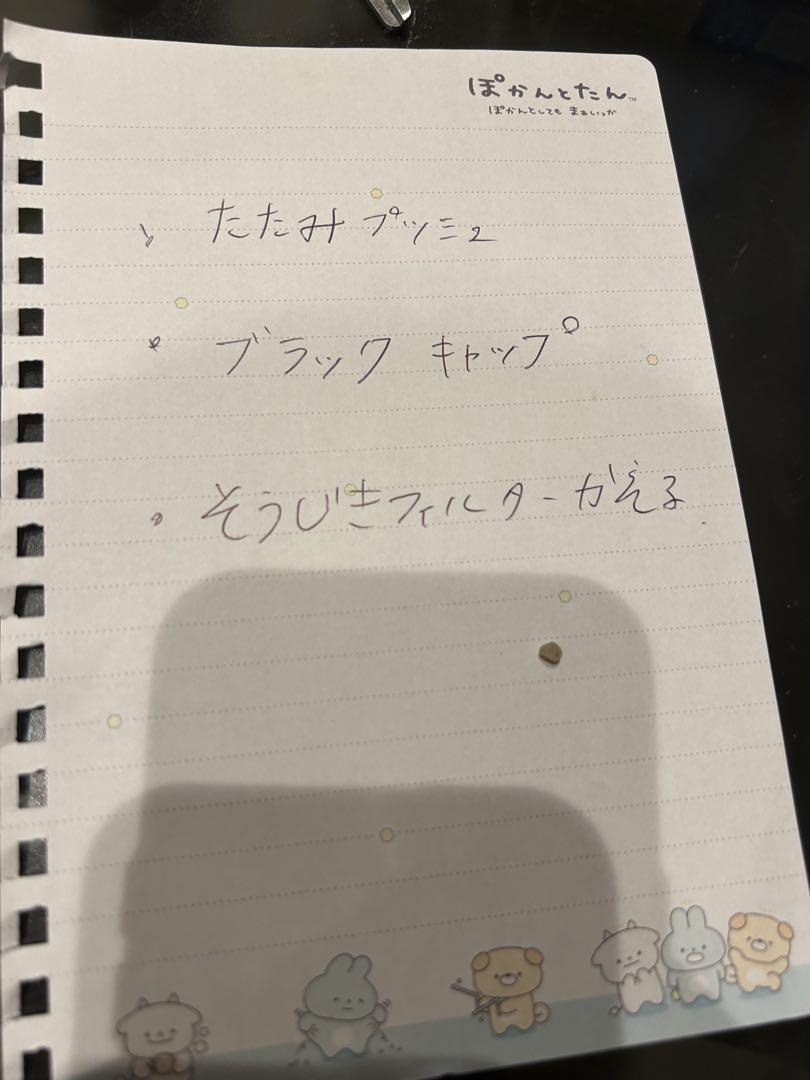 ぽかんとたん™
ぽかんとしても まぁいっか
・たたみプッシュ
・ブラックキャップ
・そうじきフィルターかえる